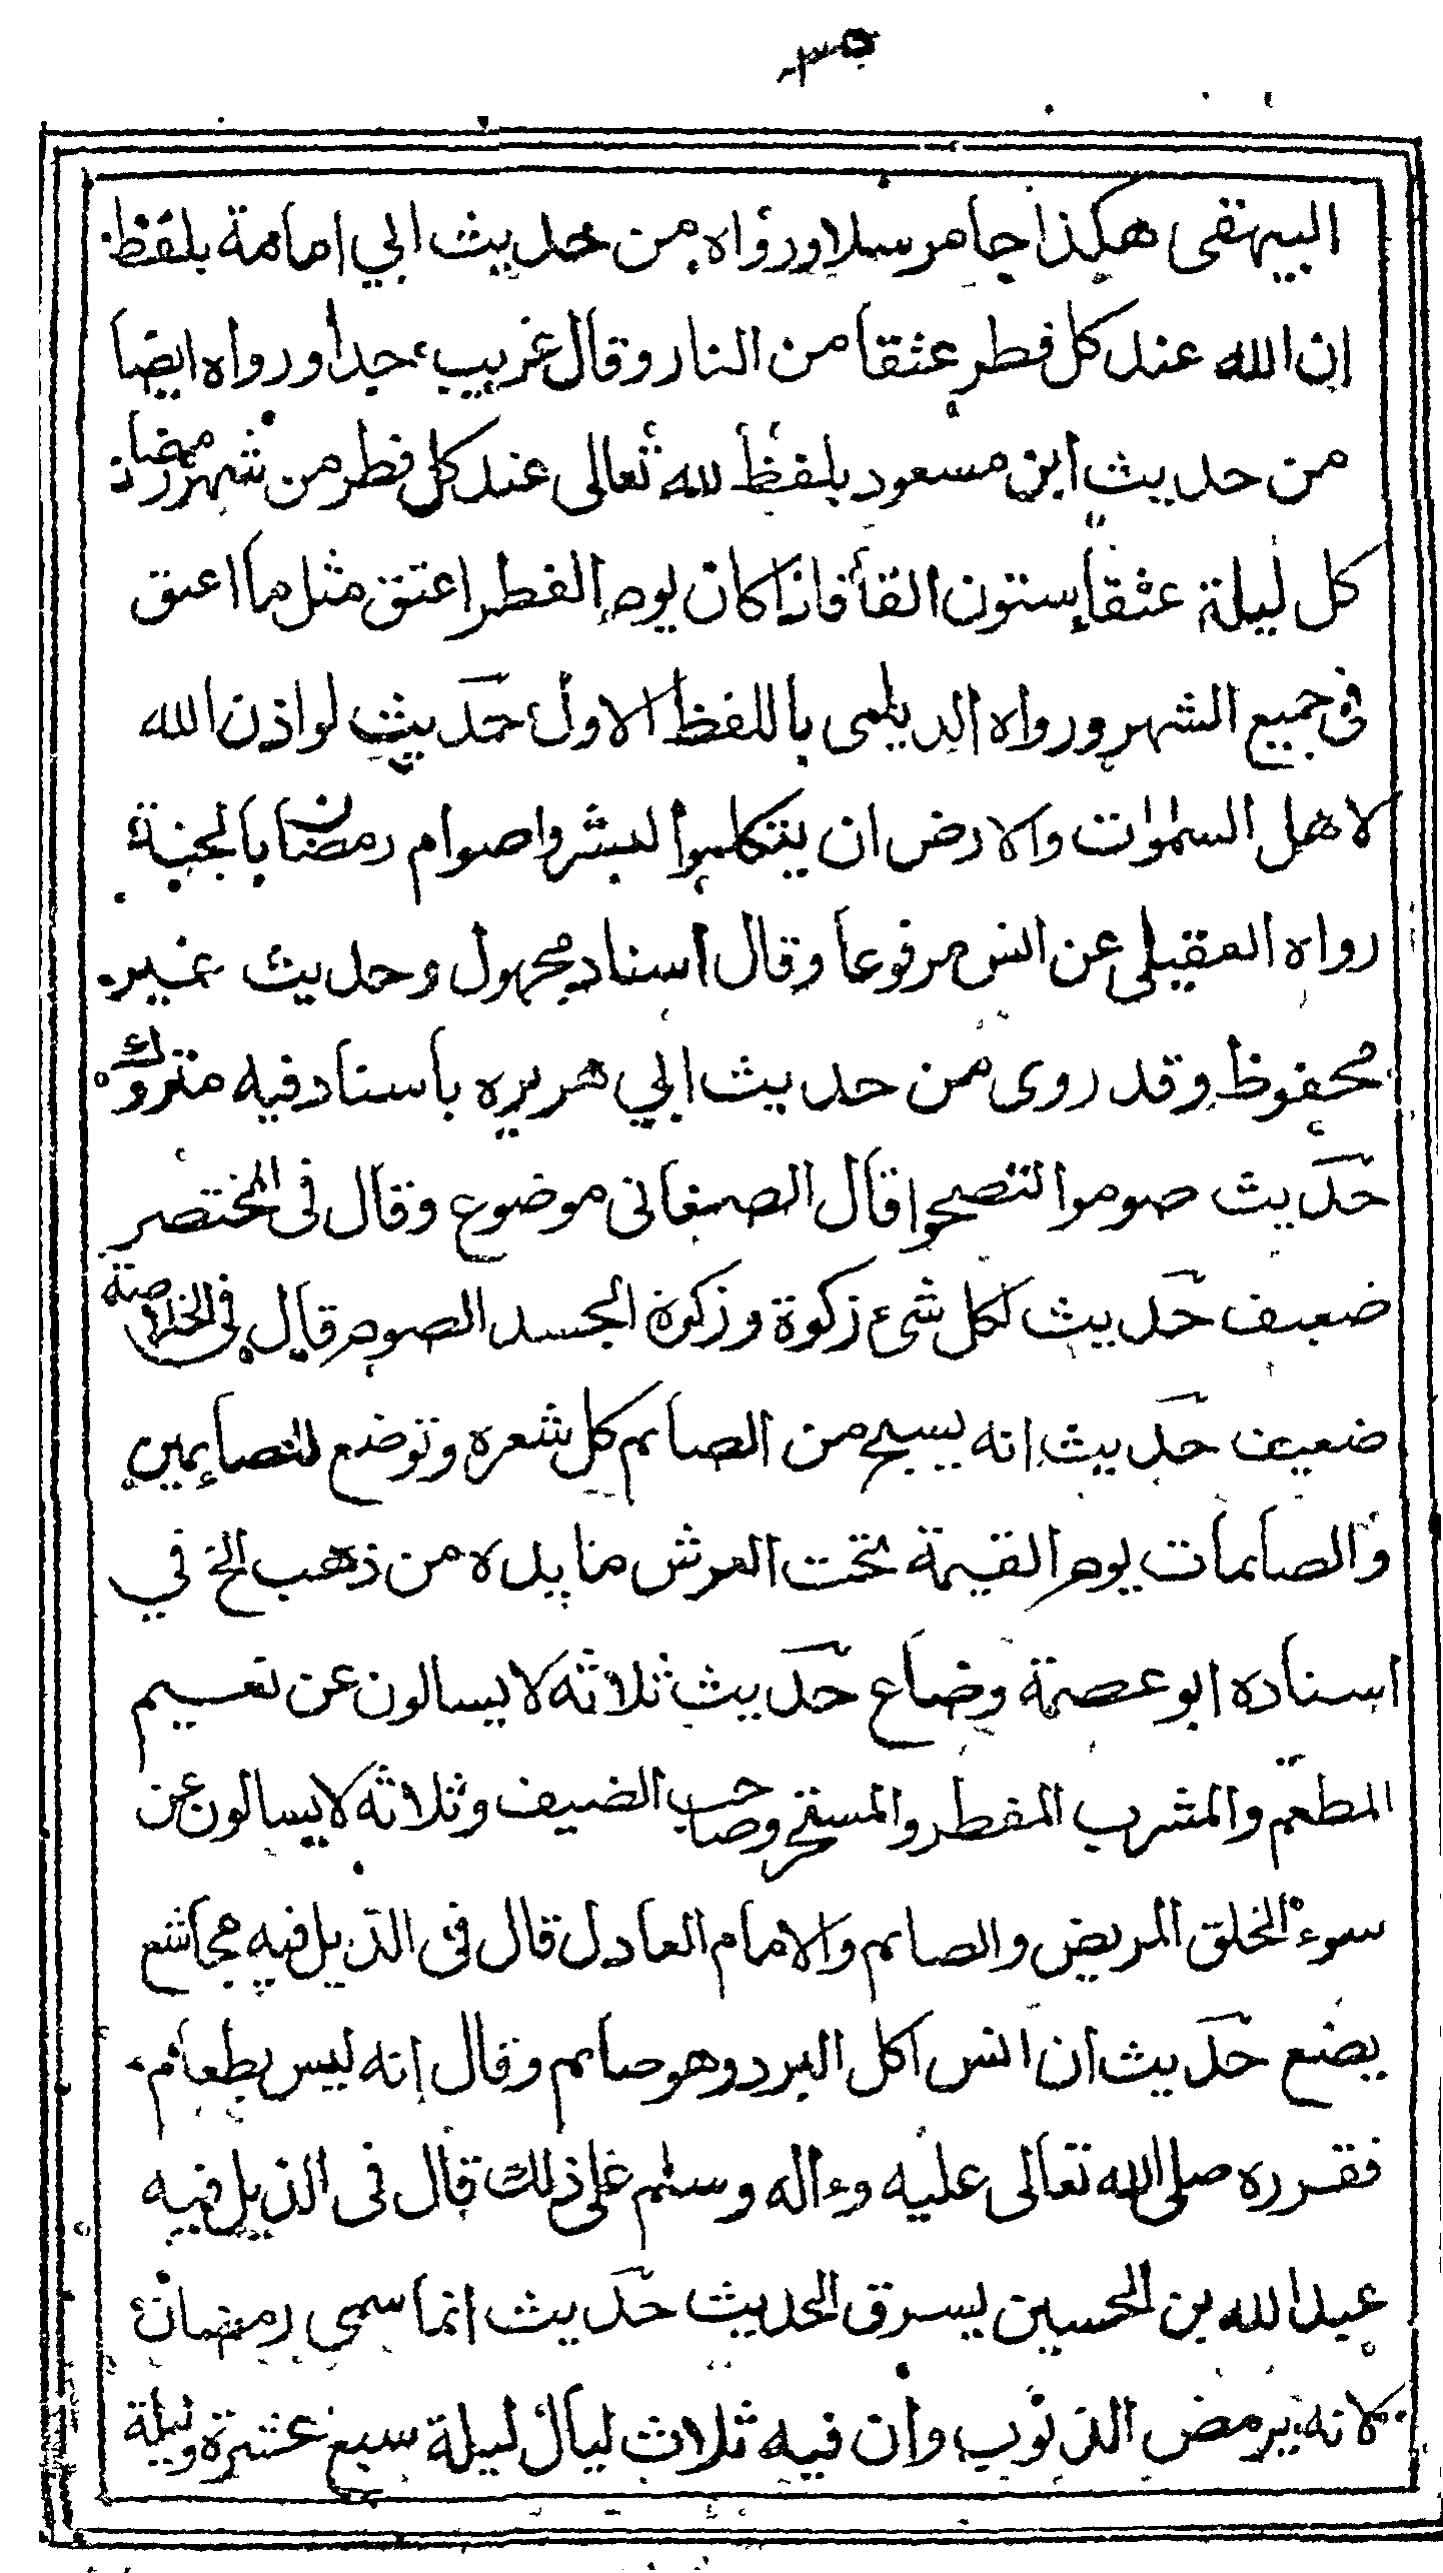 ٣٥
البيهقى هكذا جا مرسلا ورواه من حديث ابي امامة بلفظ
ان الله عند كل فطر عتقا من النار وقال غريب جدا ورواه ايضا
من حديث ابن مسعود بلفظ لله تعالى عند كل فطر من شهر رمضان
كل ليلة عتقا ستون الفا فاذا كان يوم الفطر اعتق مثل ما اعتق
فى جميع الشهر ورواه الديلمى باللفظ الاول حديث لو اذن الله
لاهل السموات والارض ان يتكلموا لبشروا صوام رمضان بالجنة
رواه العقيلى عن انس مرفوعا وقال اسناد مجهول وحديث غير
محفوظ وقد روى من حديث ابي هريره باسناد فيه متروك
حديث صوموا لتصحوا قال الصغانى موضوع وقال فى المختصر
ضعيف حديث لكل شئ زكوة وزكوة الجسد الصوم قال فى الخلاصة
ضعيف حديث انه يسبح من الصائم كل شعره وتوضع للصائمين
والصائمات يوم القيمة تحت العرش مايده من ذهب الخ في
اسناده ابو عصمة وضاع حديث ثلاثه لا يسالون عن نعيم
المطعم والمشرب المفطر والمتسحر وصاحب الضيف وثلاثه لا يسالون عن
سوء الخلق المريض والصائم والامام العادل قال فى الذيل فيه مجاشع
يضع حديث ان انس اكل البرد وهو صائم وقال انه ليس بطعام
فقرره صلى الله تعالى عليه وءاله وسلم على ذلك قال فى الذيل فيه
عبد الله بن الحسين يسرق الحديث حديث انما سمى رمضان
لانه يرمض الذنوب وان فيه ثلاث ليال ليلة سبع عشرة وليلة